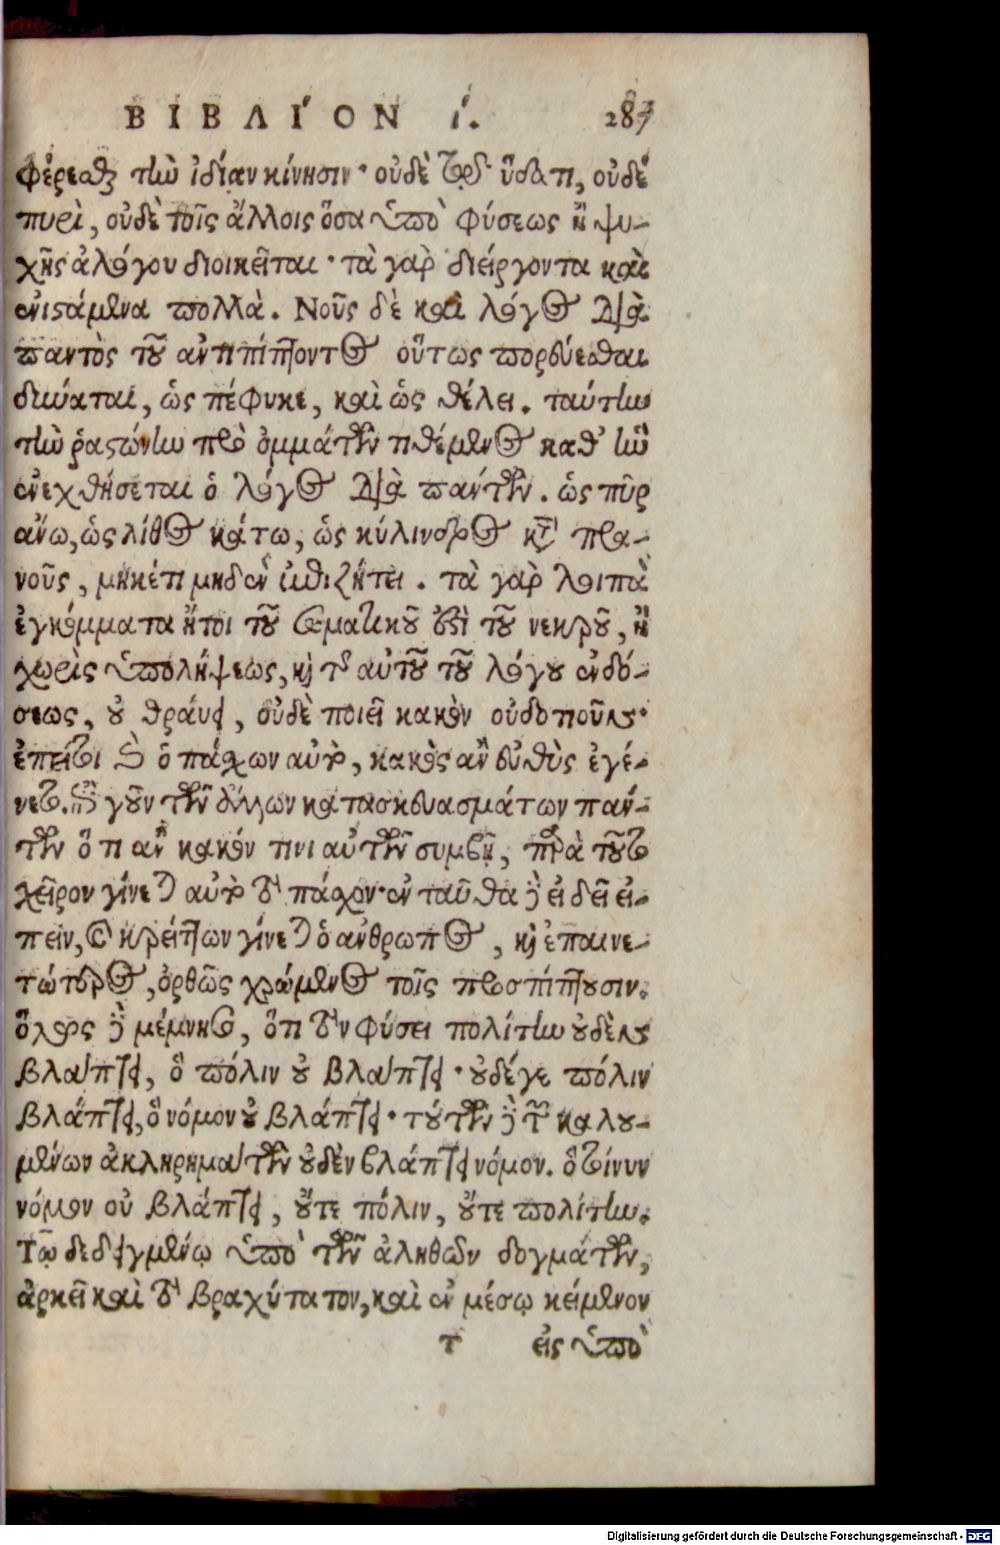 ΒΙΒΛΊΟΝ ί. 287
φέρεσθαι τὴν ἰδίαν κίνησιν· οὐδὲ τῷ δ' ὕδατι, οὐδὲ
πυρὶ, οὐδὲ τοῖς ἄλλοις ὅσα ὑπὸ φύσεως ἢ ψυ-
χῆς ἀλόγου διοικεῖται· τὰ γὰρ διείργοντα καὶ
ἐνιστάμενα πολλὰ. Νοῦς δὲ καὶ λόγος διὰ
παντὸς τοῦ ἀντιπίπτοντος οὕτως πορεύεσθαι
δύναται, ὡς πέφυκε, καὶ ὡς θέλει. ταύτην
τὴν ῥαστώνην πρὸ ὀμμάτων τιθέμενος καθ' ἣν
ἐνεχθήσεται ὁ λόγος διὰ πάντων. ὡς πῦρ
ἄνω, ὡς λίθος κάτω, ὡς κύλινδρος κατὰ πρα-
νοῦς, μηκέτι μηδὲν ἐπιζήτει. τὰ γὰρ λοιπὰ
ἐγκόμματα ἤτοι τοῦ σωματικοῦ ἐστὶ τοῦ νεκροῦ, ἢ
χωρὶς ὑπολήψεως, καὶ τῆς αὐτοῦ τοῦ λόγου ἐνδό-
σεως, οὐ θραύει, οὐδὲ ποιεῖ κακὸν οὐδοτιοῦν·
ἐπεί τοι καὶ ὁ πάσχων αὐτὸ, κακὸς ἂν εὐθὺς ἐγέ-
νετο. γοῦν τῶν ἄλλων κατασκευασμάτων πάν-
των ὅ τι ἂν κακόν τινι αὐτῶν συμβῇ, παρὰ τοῦτο
χεῖρον γίνεται αὐτὸ τὸ πάσχον· ἐνταῦθα δὲ εἰ δεῖ εἰ-
πεῖν, καὶ κρείττων γίνεται ὁ ἄνθρωπος, καὶ ἐπαινε-
τώτερος, ὀρθῶς χρώμενος τοῖς προσπίπτουσιν.
ὅλως δὲ μέμνησο, ὅτι τὸν φύσει πολίτην οὐδὲν
βλάπτει, ὃ πόλιν οὐ βλάπτει· οὐδέγε πόλιν
βλάπτει, ὃ νόμον οὐ βλάπτει· τούτων δὲ τῶν καλου-
μένων ἀκληρημάτων οὐδὲν βλάπτει νόμον. ὃ τοίνυν
νόμον οὐ βλάπτει, οὔτε πόλιν, οὔτε πολίτην.
Τῷ δεδηγμένῳ ὑπὸ τῶν ἀληθῶν δογμάτων,
ἀρκεῖ καὶ τὸ βραχύτατον, καὶ ἐν μέσῳ κείμενον
T εἰς ὑπὸ
Digitalisierung gefördert durch die Deutsche Forschungsgemeinschaft - DFG